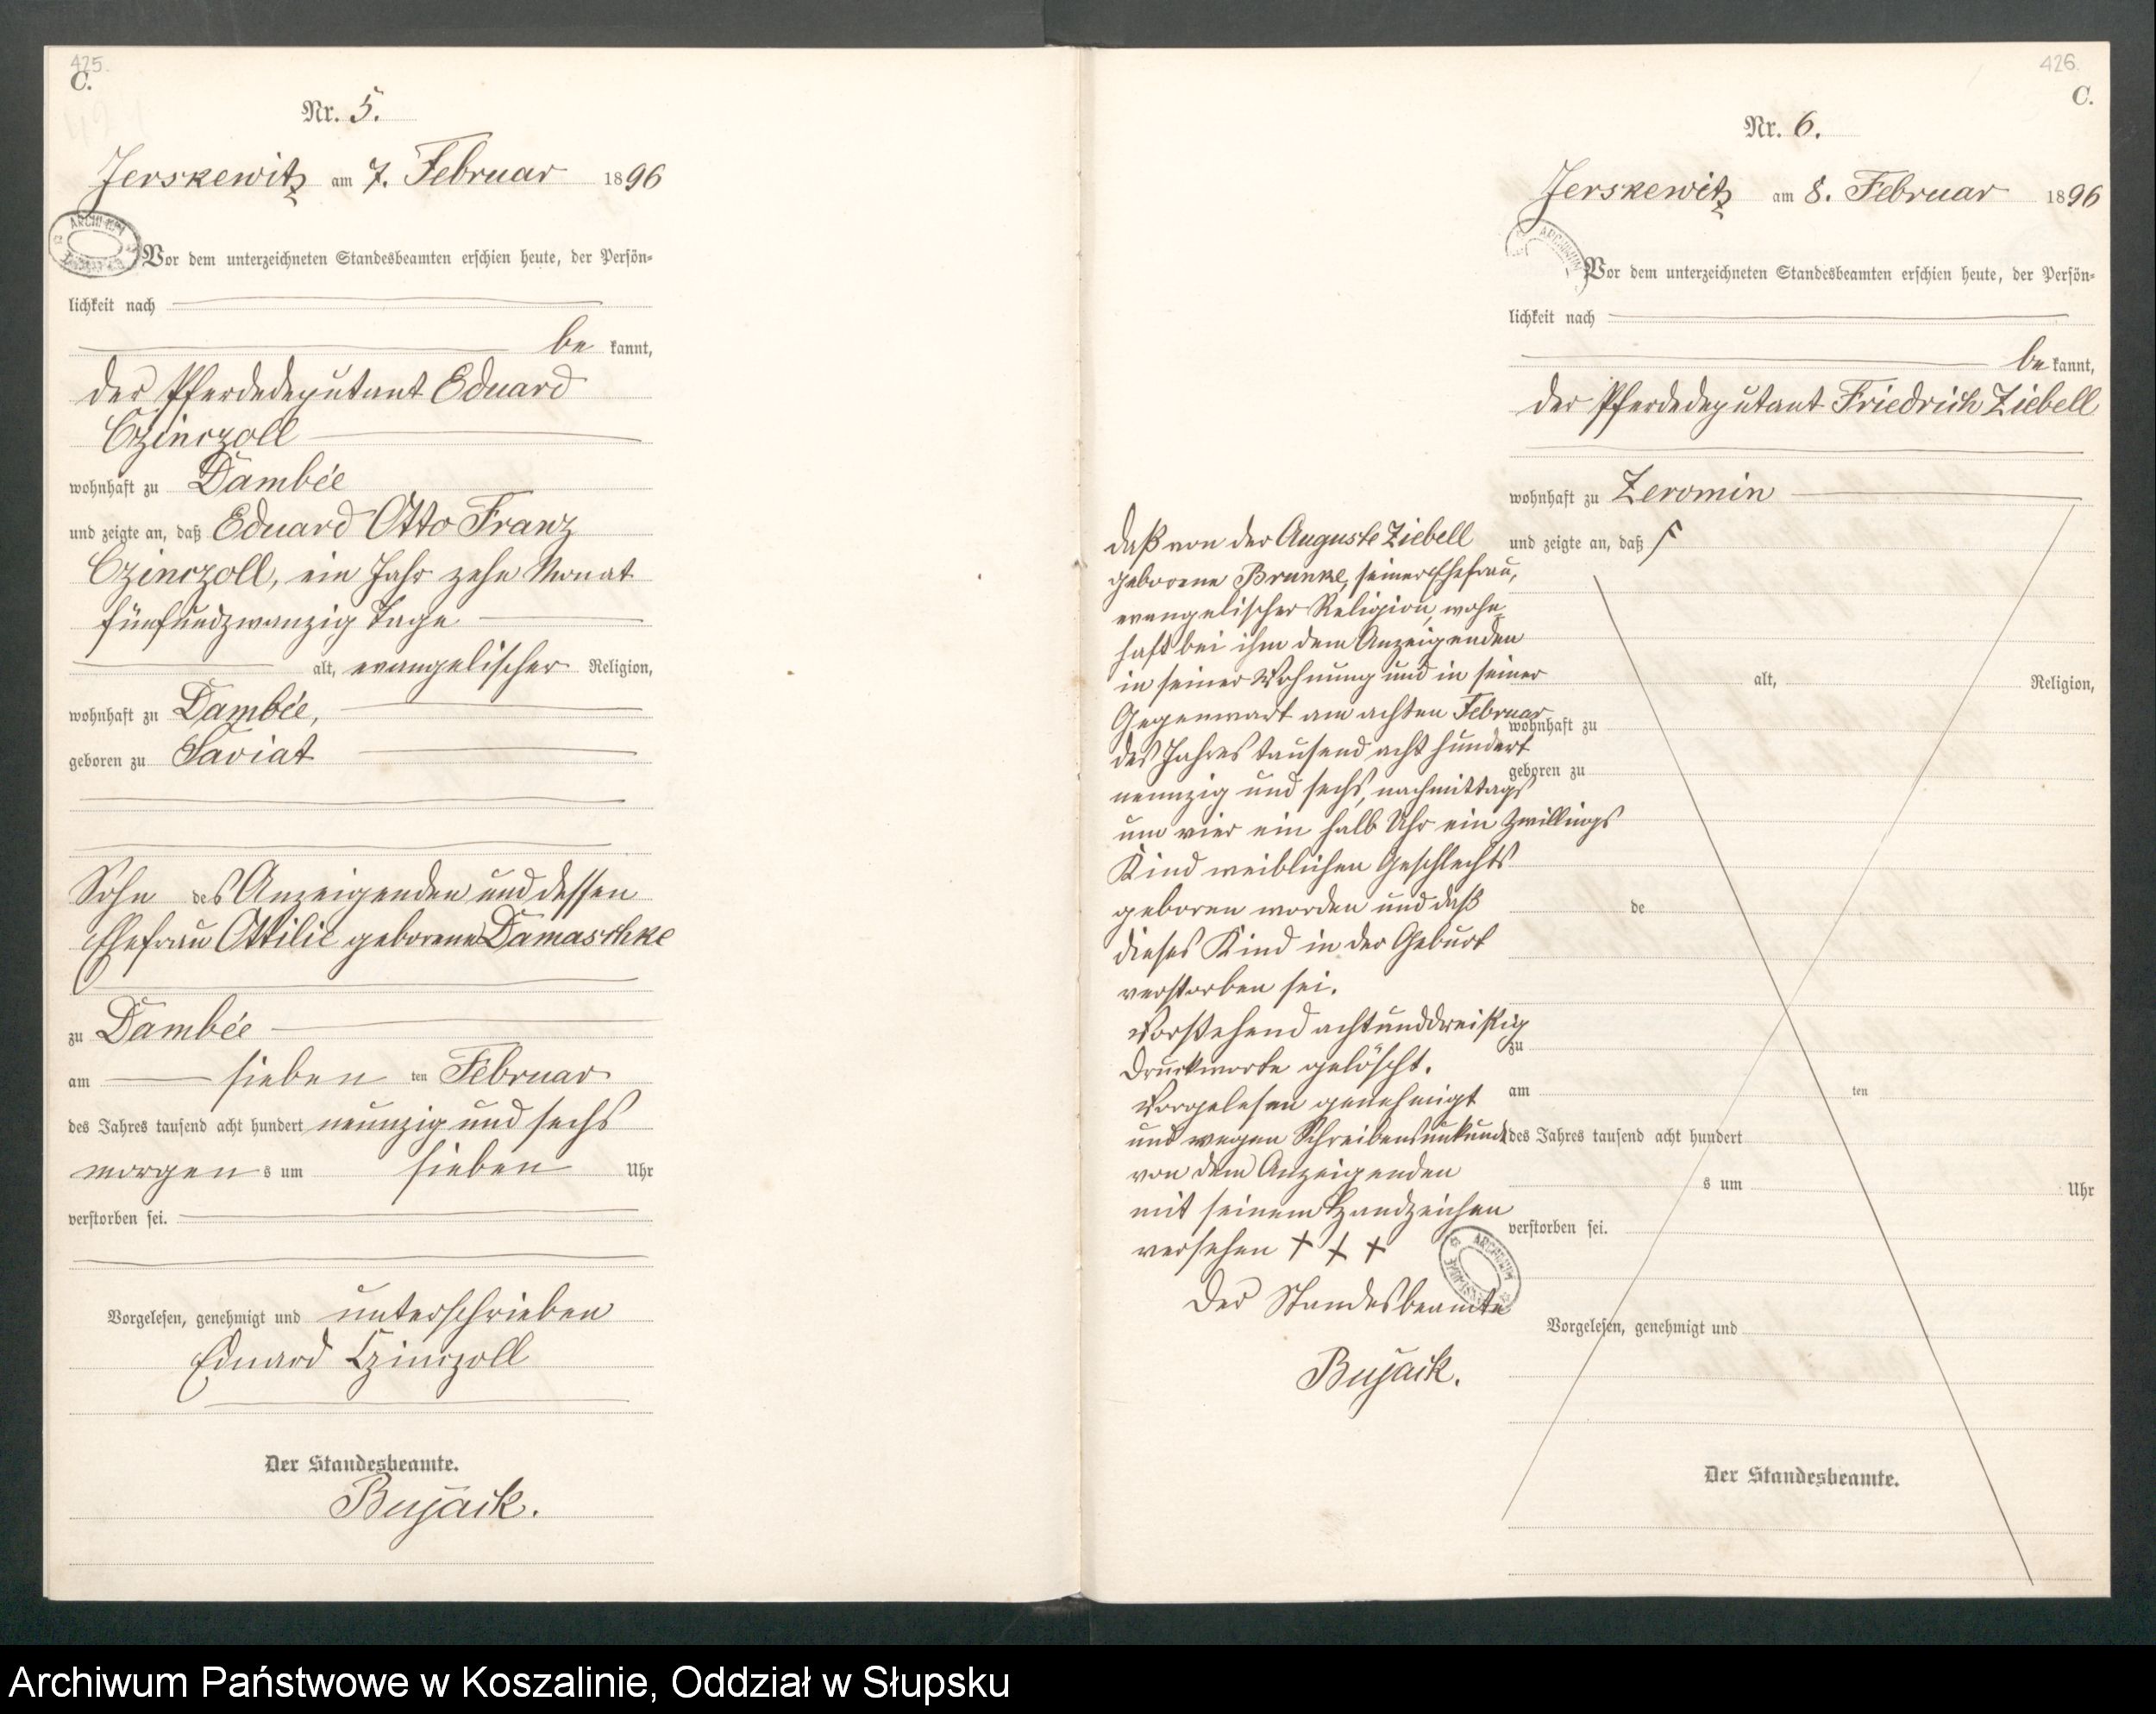 425.
C.
Nr. 5.
Jerskewitz am 7. Februar 1896
ARCHIWUM
Vor dem unterzeichneten Standesbeamten erschien heute, der Persön-
lichkeit nach
be kannt,
der Pferdedeputant Eduard
Czinczoll
wohnhaft zu Dambée
und zeigte an, daß Eduard Otto Franz
Czinczoll, ein Jahr zehn Monat
fünfundzwanzig Tage
alt, evangelischer Religion,
wohnhaft zu Dambée,
geboren zu Saviat
Sohn des Anzeigenden und dessen
Ehefrau Ottilie geborene Damaschke
zu Dambée
am sieben ten Februar
des Jahres tausend acht hundert neunzig und sechs
morgen s um sieben Uhr
verstorben sei.
Vorgelesen, genehmigt und unterschrieben
Eduard Czinczoll
Der Standesbeamte.
Bujack.
426.
C.
Nr. 6.
Jerskewitz am 8. Februar 1896
ARCHIWUM
Vor dem unterzeichneten Standesbeamten erschien heute, der Persön-
lichkeit nach
be kannt,
der Pferdedeputant Friedrich Ziebell
wohnhaft zu Zeromin
und zeigte an, daß
daß von der Auguste Ziebell
geborene Brunke, seiner Ehefrau,
evangelischer Religion, wohn-
haft bei ihm dem Anzeigenden
in seiner Wohnung und in seiner
Gegenwart am achten Februar
des Jahres tausend acht hundert
neunzig und sechs, nachmittags
um vier ein halb Uhr ein Zwillings
Kind weiblichen Geschlechts
geboren worden und daß
dieses Kind in der Geburt
verstorben sei.
Vorstehend achtunddreißig
Druckworte gelöscht.
Vorgelesen genehmigt
und wegen Schreibensunkunde
von dem Anzeigenden
mit seinem Handzeichen
versehen + + +
Der Standesbeamte
Bujack.
alt, Religion,
wohnhaft zu
geboren zu
de
zu
am ten
des Jahres tausend acht hundert
s um Uhr
verstorben sei.
ARCHIWUM
Vorgelesen, genehmigt und
Der Standesbeamte.
Archiwum Państwowe w Koszalinie, Oddział w Słupsku